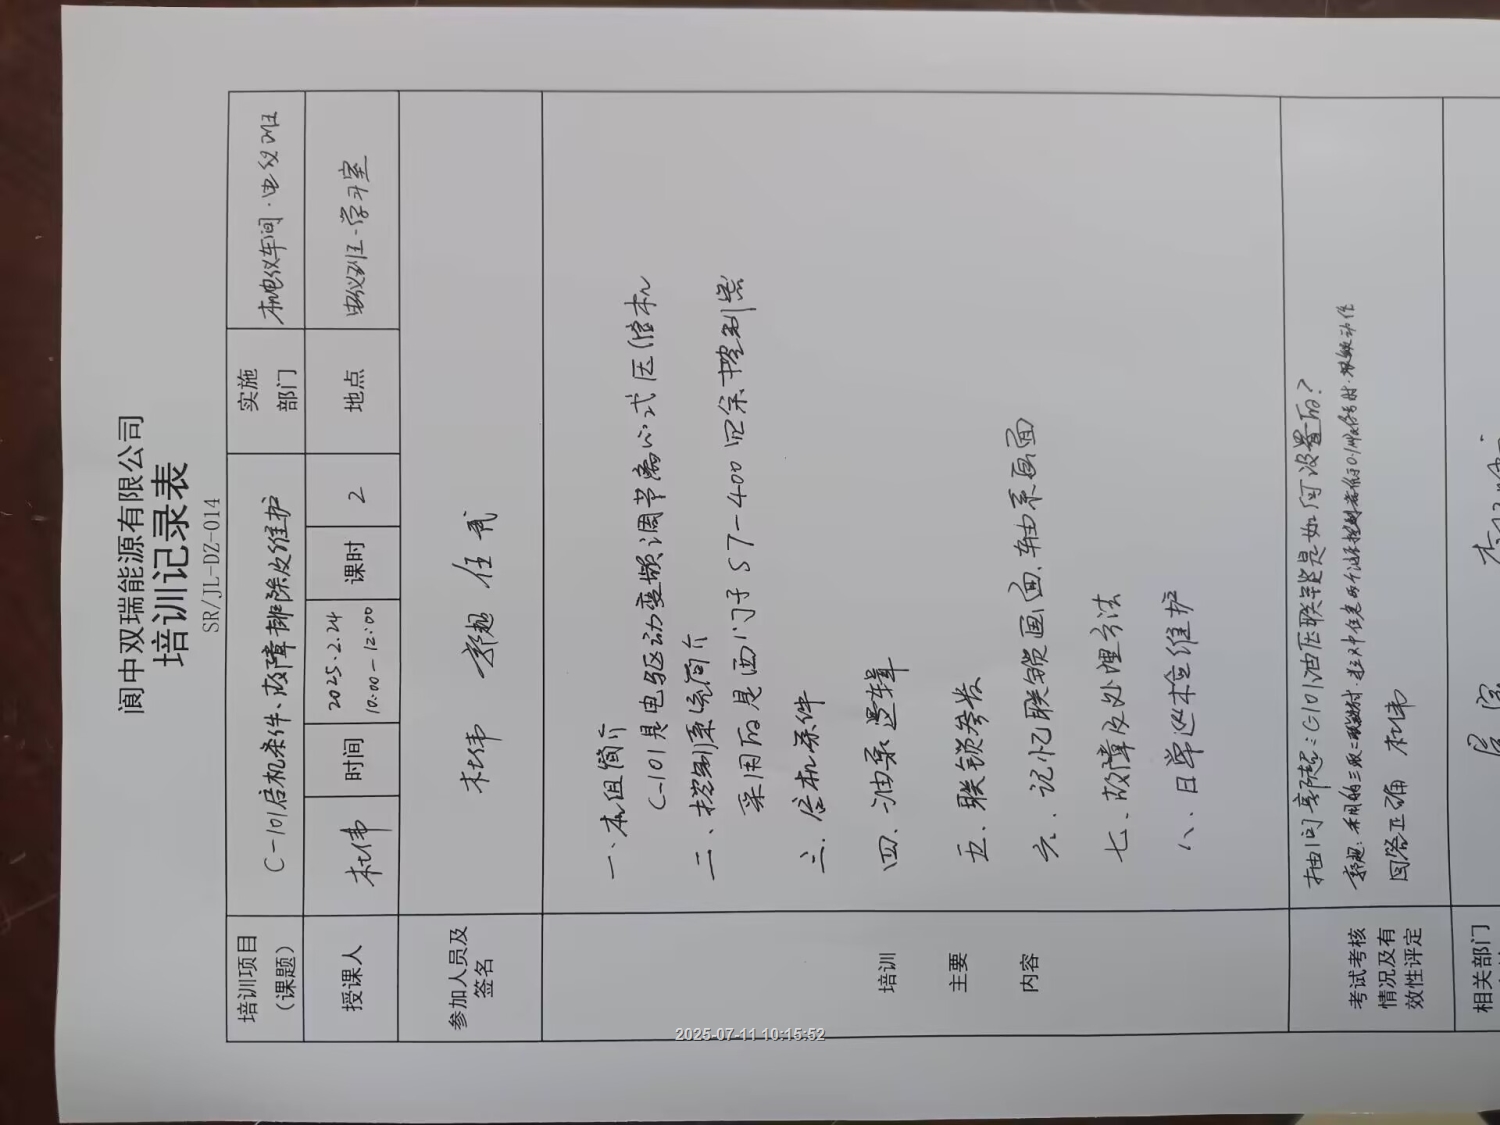 阆中双瑞能源有限公司
培训记录表
SR/JL-DZ-014
培训项目（课题） C-101启机条件、故障排除及维护 实施部门 机电仪车间·电仪班
授课人 杜伟 时间 2025.2.24 10:00-12:00 课时 2 地点 电仪班-学习室
参加人员及签名 杜伟 郭超 任贰
培训主要内容
一、机组简介
C-101是电驱动变频调节离心式压缩机
二、控制系统简介
采用的是西门子S7-400冗余中控制器
三、启机条件
四、油泵逻辑
五、联锁参数
六、记忆联锁画面、轴系画面
七、故障及处理方法
八、日常巡检维护
考试考核情况及有效性评定
抽问郭超：C101油压联锁是如何设置的？
郭超：采用的三取二 0.1 时
回答正确 杜伟
相关部门
2025-07-11 10:15:52